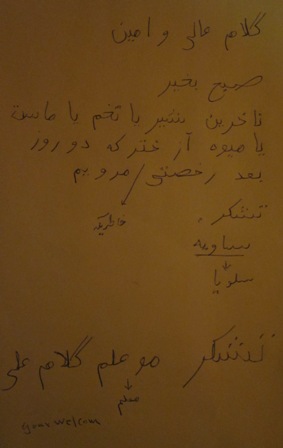 گلام عالی و امین
صبح بخیر
تاخرین بنشیر یا تخم یا ماست
یا میوه آز ختر که دو روز
بعد رخصتی/مرویم
تشکر.
ساوعه
سلویا
تشکر موعلم گلام علی
معلم
your welcom